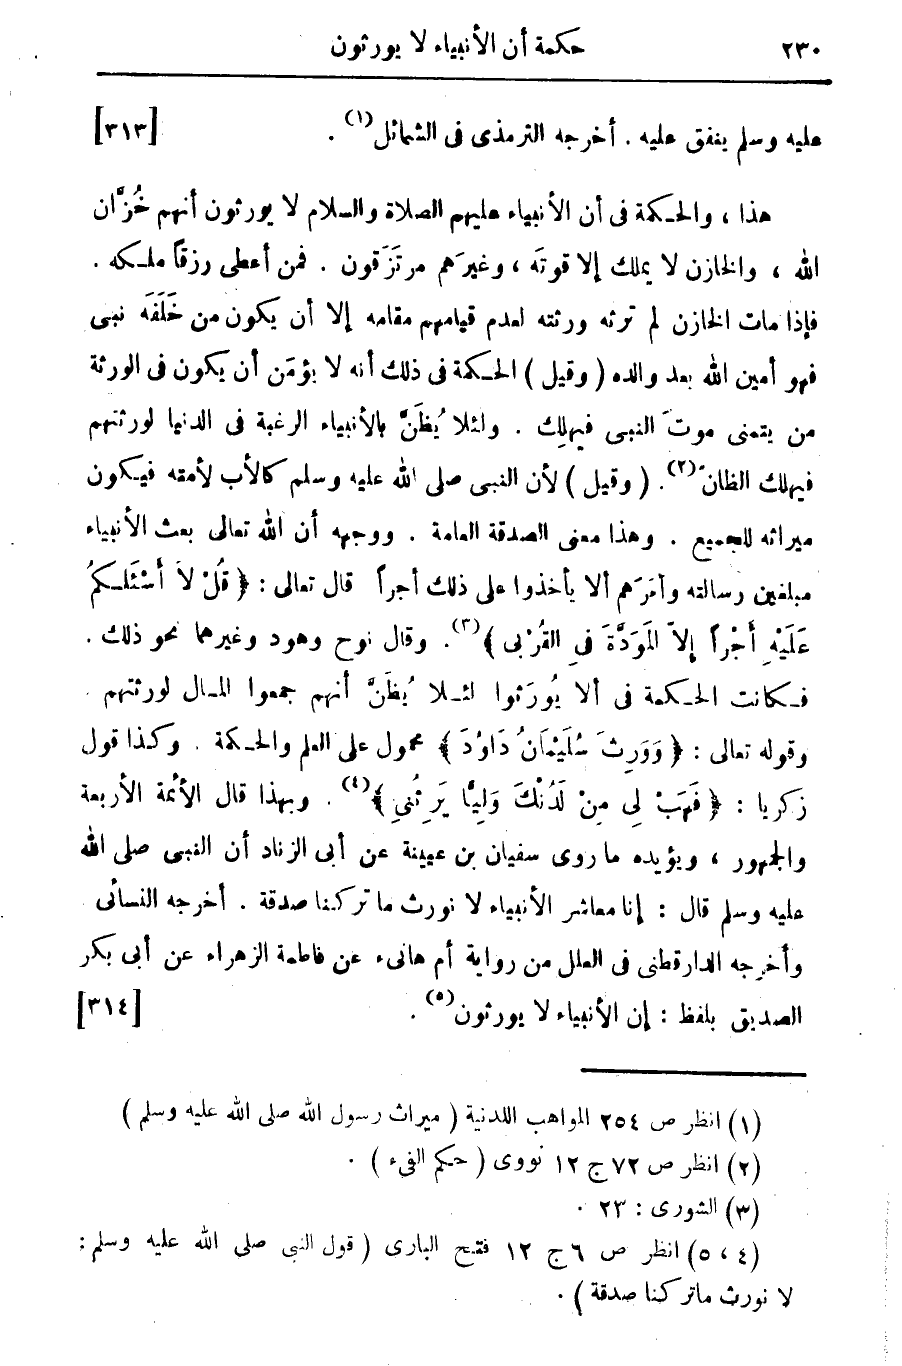 ٢٣٠ حكمة أن الأنبياء لا يورثون
عليه وسلم ينفق عليه . أخرجه الترمذى فى الشمائل(١) . [٣١٣]
هذا ، والحكمة فى أن الأنبياء عليهم الصلاة والسلام لا يورثون أنهم خُزَّان
الله ، والخازن لا يملك إلا قوتَه ، وغيرَهم مرتَزَقون . فمن أعطى رزقاً ملكه .
فإذا مات الخازن لم ترثه ورثته لعدم قيامهم مقامه إلا أن يكون من خَلَفَه نبى
فهو أمين الله بعد والده ( وقيل ) الحكمة فى ذلك أنه لا يؤمَن أن يكون فى الورثة
من يتمنى موتَ النبى فيهلك . ولئلا يُظَنَّ بالأنبياء الرغبة فى الدنيا لورثتهم
فيهلك الظان(٢). ( وقيل ) لأن النبى صلى الله عليه وسلم كالأب لأمته فيكون
ميراثه للجميع . وهذا معنى الصدقة العامة . ووجهه أن الله تعالى بعث الأنبياء
مبلغين رسالته وأمَرَهم ألا يأخذوا على ذلك أجراً قال تعالى : ﴿ قُلْ لاَ أَسْئَلـكُمُ
عَلَيْهِ أَجْراً إِلاَّ الْمَوَدَّةَ فِى القُرْبى ﴾(٣). وقال نوح وهود وغيرهما نحو ذلك .
فـكانت الحـكمة فى ألا يُورَثوا لئـلا يُظَنَّ أنهم جمعوا المـال لورثتهم .
وقوله تعالى : ﴿ وَوَرِثَ سُلَيْمَانُ دَاوُدَ ﴾ محمول على العلم والحـكمة . وكذا قول
زكريا : ﴿ فَهَبْ لِى مِنْ لَدُنْكَ وَلِيًّا يَرِثُنِي ﴾(٤) . وبهذا قال الأئمة الأربعة
والجمهور ، ويؤيده ما روى سفيان بن عيينة عن أبى الزناد أن النبى صلى الله
عليه وسلم قال : إنا معاشر الأنبياء لا نورث ما تركنا صدقة . أخرجه النسائى
وأخرجه الدارقطنى فى العلل من رواية أم هانىء عن فاطمة الزهراء عن أبى بكر
الصديق بلفظ : إن الأنبياء لا يورثون(٥) . [٣١٤]
(١) انظر ص ٢٥٤ المواهب اللدنية ( ميراث رسول الله صلى الله عليه وسلم )
(٢) انظر ص ٧٢ ج ١٢ نووى ( حكم الفىء ) .
(٣) الشورى : ٢٣ .
(٤ ، ٥) انظر ص ٦ ج ١٢ فتح البارى ( قول النبى صلى الله عليه وسلم :
لا نورث ماتركنا صدقة ) .